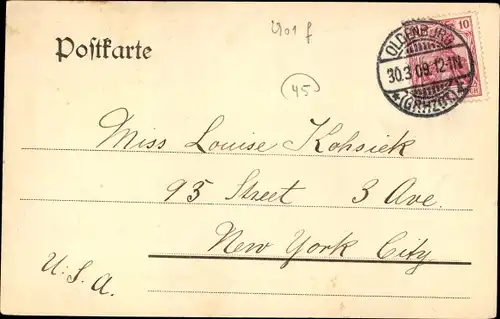 Postkarte
45
10
OLDENBURG
30.3.09.12-1N.
*(GRHZGT.)*
Miss Louise Kohsiek
95 Street 3 Ave.
New York City
U.S.A.